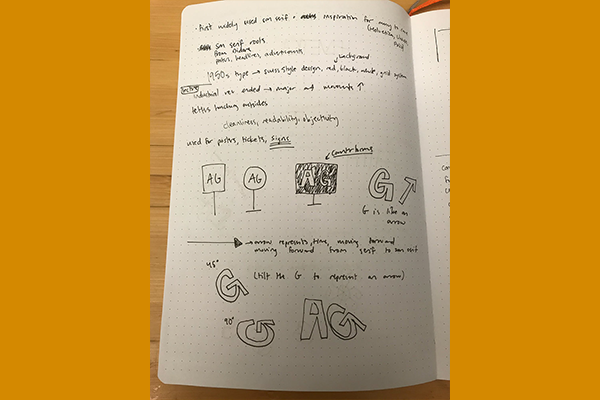 · First widely used san serif · inspiration for many to come
(Helvetica, Univers,
san serif roots
from
posters, headlines, advertisements
background
1950s type → swiss style design, red, black, white, grid system
industrial rev ended → major art movements ↑
letters touching outsides
cleanliness, readability, objectivity
used for posters, tickets, signs
counterforms
AG
AG
AG
G
G is like an
arrow
→ arrow represents, time, moving forward
moving forward from serif to san serif
45°
G
(tilt the G to represent an arrow)
90°
G
AG